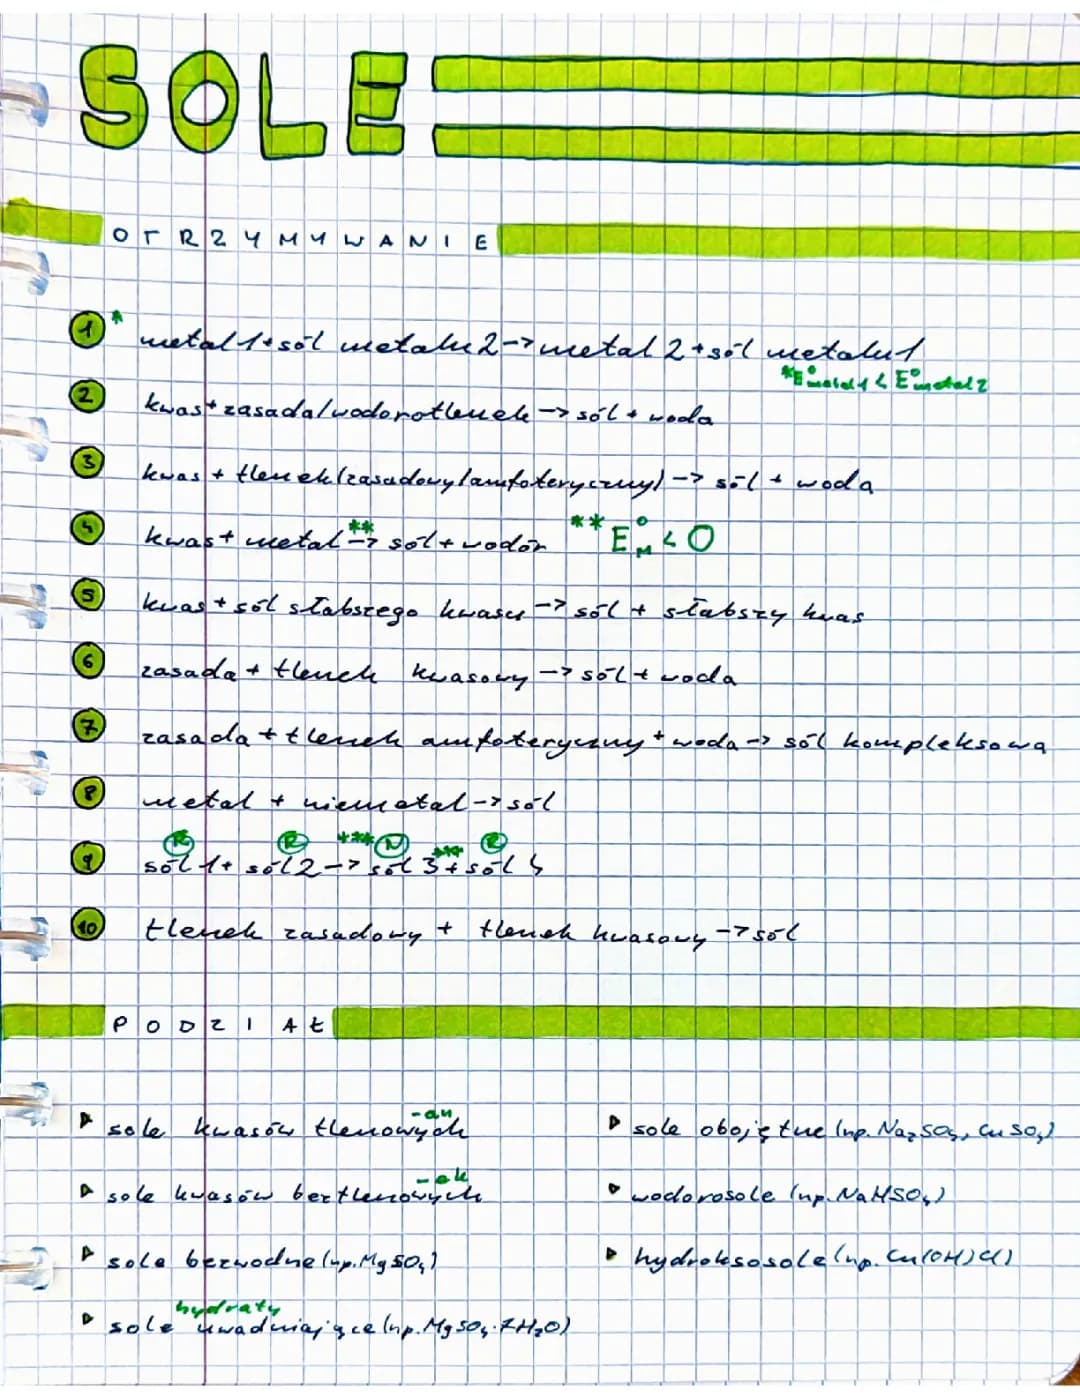 SOLE
OTRZYMYWANIE
1 * metal 1 + sól metalu 2 -> metal 2 + sól metalu 1
*E° metal 1 < E° metal 2
2 kwas + zasada/wodorotlenek -> sól + woda
3 kwas + tlenek (zasadowy/amfoteryczny) -> sól + woda
4 kwas + metal **-> sól + wodór **E°M < 0
5 kwas + sól słabszego kwasu -> sól + słabszy kwas
6 zasada + tlenek kwasowy -> sól + woda
7 zasada + tlenek amfoteryczny + woda -> sól kompleksowa
8 metal + niemetal -> sól
R R *** N *** R
9 sól 1 + sól 2 -> sól 3 + sól 4
10 tlenek zasadowy + tlenek kwasowy -> sól
PODZIAŁ
-an
sole kwasów tlenowych
-ek
sole kwasów beztlenowych
sole bezwodne (np. MgSO4)
hydraty
sole uwadniające (np. MgSO4·7H2O)
sole obojętne (np. Na2SO4, CuSO4)
wodorosole (np. NaHSO4)
hydroksosole (np. Cu(OH)Cl)